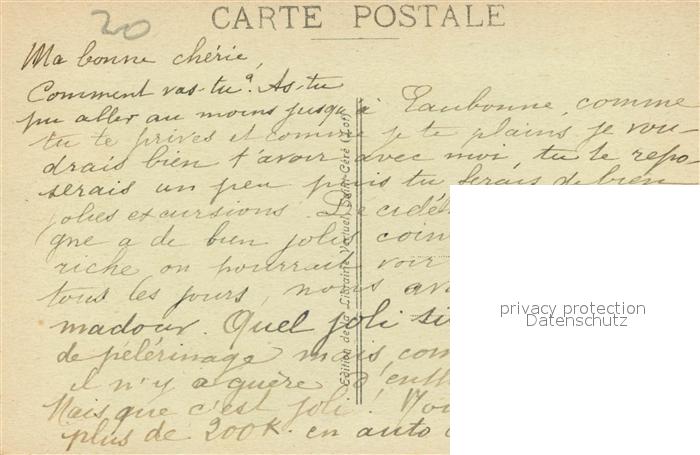 20
CARTE POSTALE
Ma bonne chérie,
Comment vas-tu? As-tu
pu aller au moins jusqu'à Eaubonne, comme
tu te prives et comme je te plains je vou-
drais bien t'avoir avec moi, tu te repo-
serais un peu puis tu ferais de bien
jolies excursions. Décidé
gne a de bien jolis coin
riche on pourrait voir
tous les jours, nous av
madour. Quel joli si
de pélérinage mais, com
il n'y a guère d'enth
Mais que c'est joli! Nou
plus de 200K. en auto
Edition de la Librairie Vertuel, Saint-Céré (Lot)
privacy protection
Datenschutz